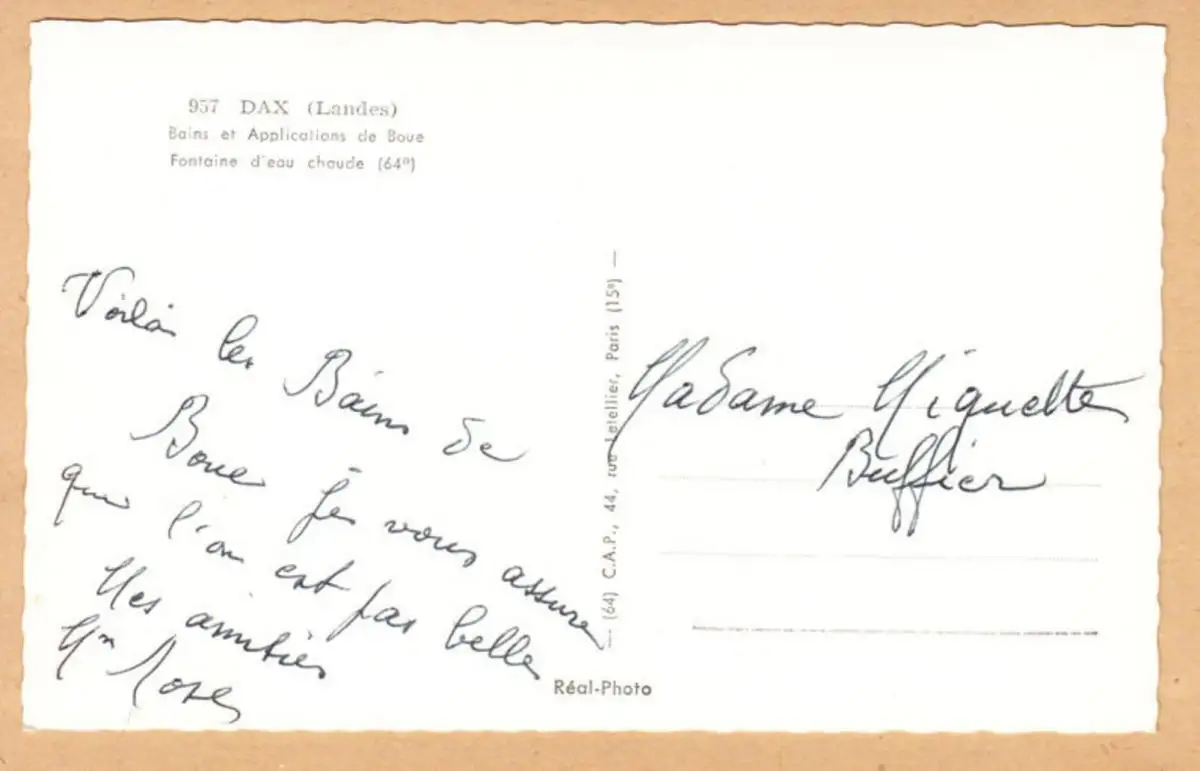 957 DAX (Landes)
Bains et Applications de Boue
Fontaine d'eau chaude (64º)
Voilà les Bains de
Boue Je vous assure
que l'on est pas belle
Mes amitiés
Mme Rose
Madame Miguette
Buffier
— (64) C.A.P., 44, rue Letellier, Paris (15e) —
Réal-Photo